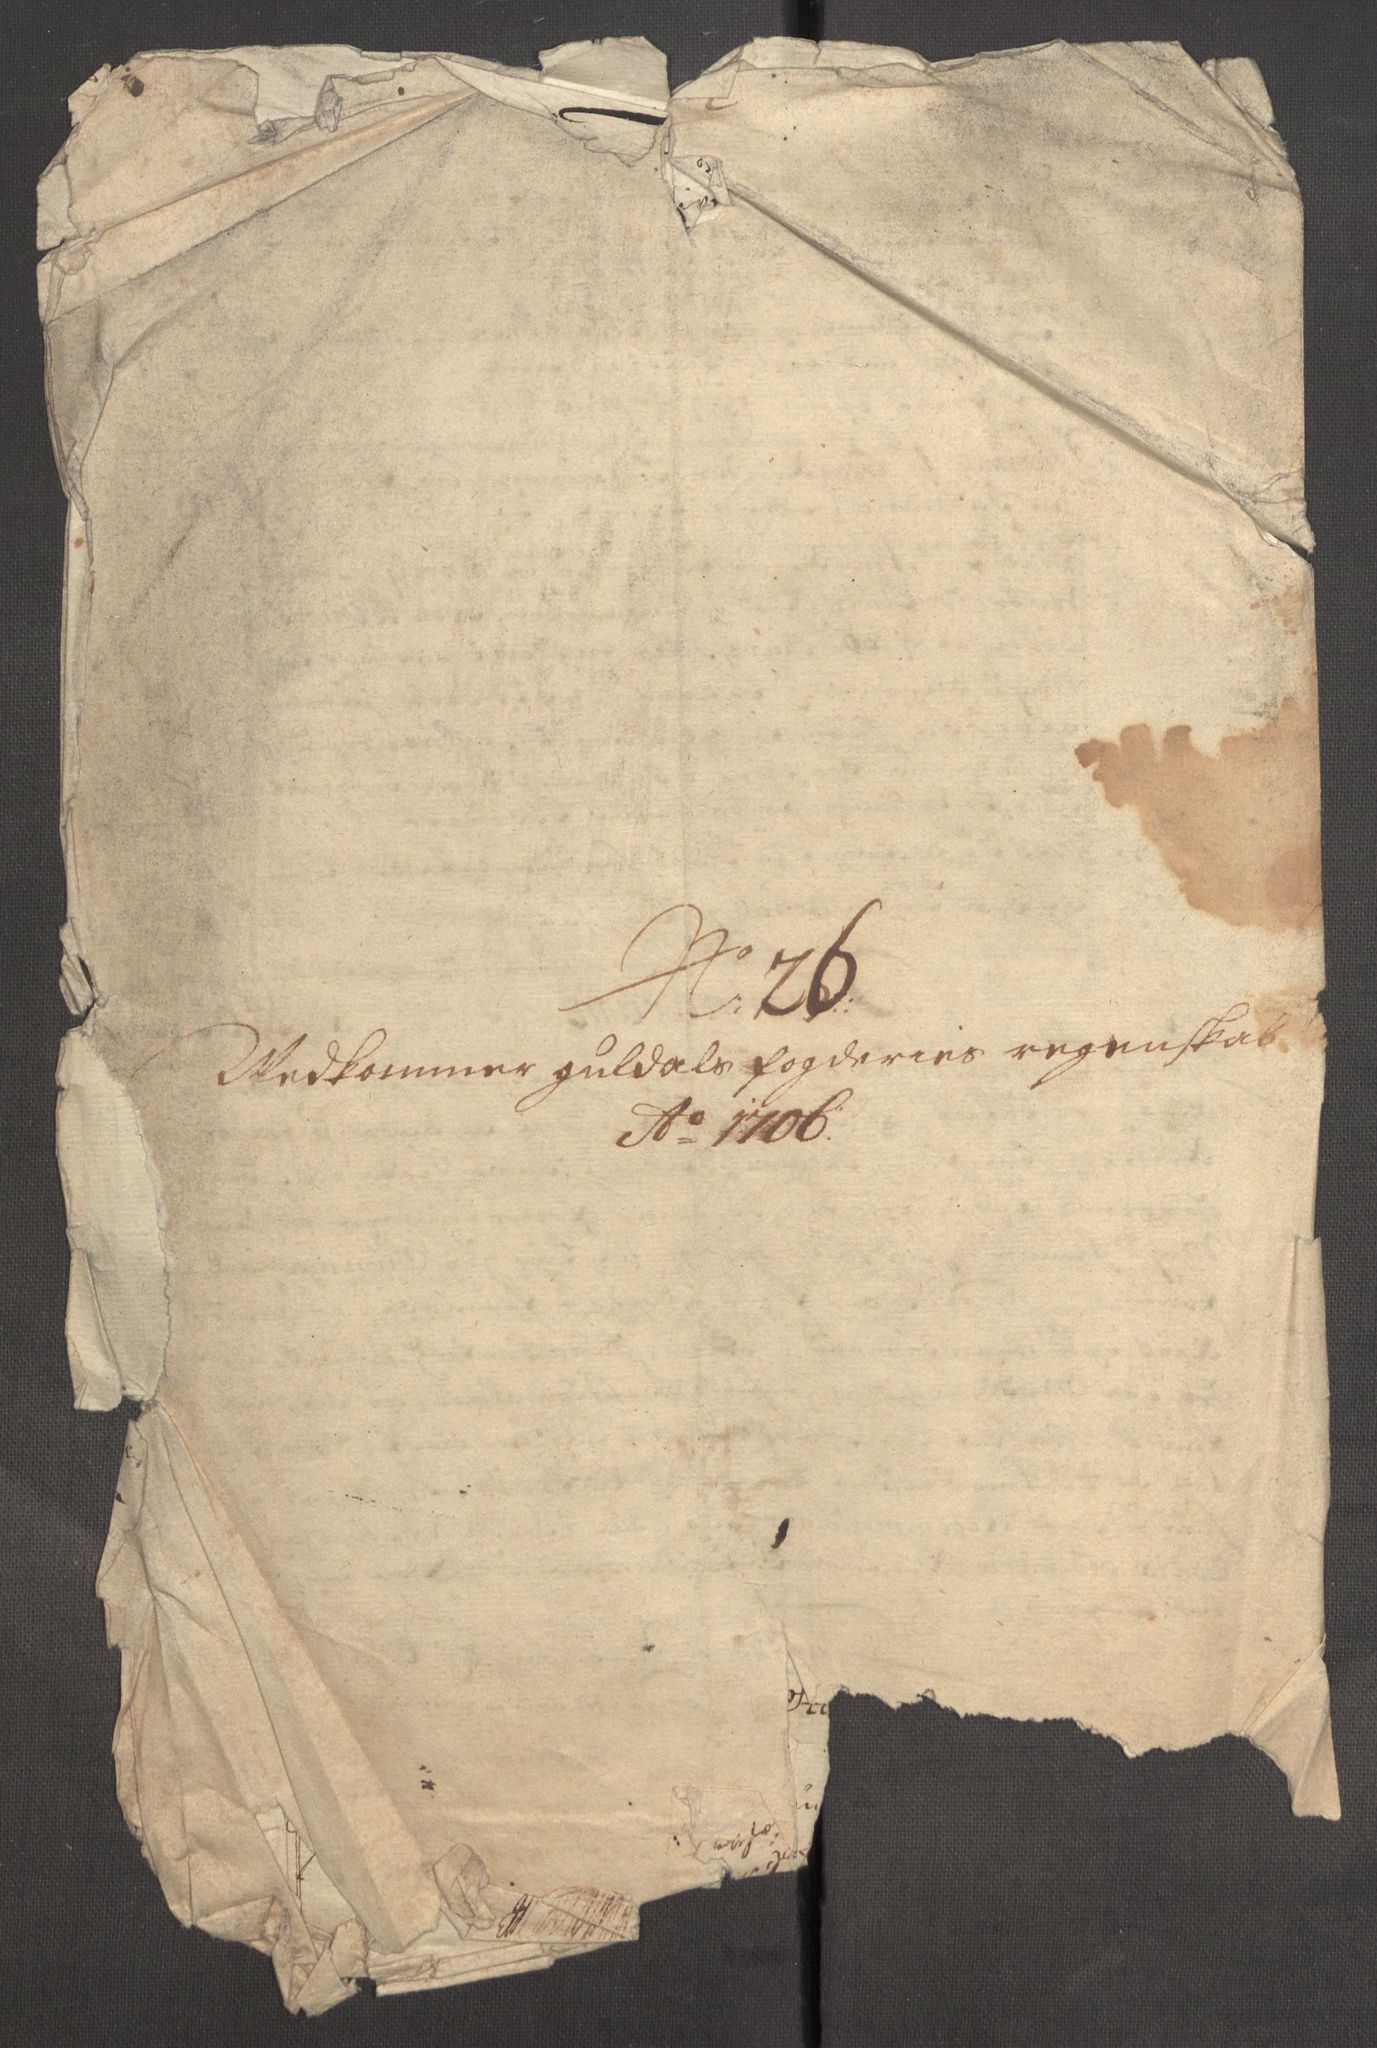 No: 26.
Vedkommer guldals fogderies regenskab
Ao 1706.